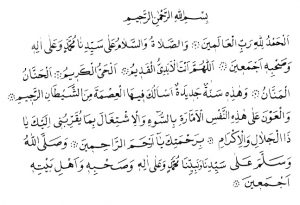 بِسْمِ اللهِ الرَّحْمٰنِ الرَّحِيمِ
اَلْحَمْدُ لِلّٰهِ رَبِّ الْعَالَمِينَ ۞ وَالصَّلَاةُ وَالسَّلَامُ عَلٰى سَيِّدِنَا مُحَمَّدٍ وَعَلٰى اٰلِهِ
وَصَحْبِهِ اَجْمَعِينَ ۞ اَللّٰهُمَّ اَنْتَ الْاَبَدِيُّ الْقَدِيمُ ۞ اَلْحَيُّ الْكَرِيمُ ۞ اَلْحَنَّانُ
الْمَنَّانُ ۞ وَهٰذِهِ سَنَةٌ جَدِيدَةٌ اَسْأَلُكَ فِيهَا الْعِصْمَةَ مِنَ الشَّيْطَانِ الرَّجِيمِ ۞
وَالْعَوْنَ عَلٰى هٰذِهِ النَّفْسِ الْاَمَّارَةِ بِالسُّوءِ وَالْاِشْتِغَالَ بِمَا يُقَرِّبُنِى اِلَيْكَ يَا
ذَا الْجَلَالِ وَالْاِكْرَامِ ۞ بِرَحْمَتِكَ يَا اَرْحَمَ الرَّاحِمِينَ ۞ وَصَلَّى اللهُ
وَسَلَّمَ عَلٰى سَيِّدِنَا وَنَبِيِّنَا مُحَمَّدٍ وَعَلٰى اٰلِهِ وَصَحْبِهِ وَاَهْلِ بَيْتِهِ
اَجْمَعِينَ ۞